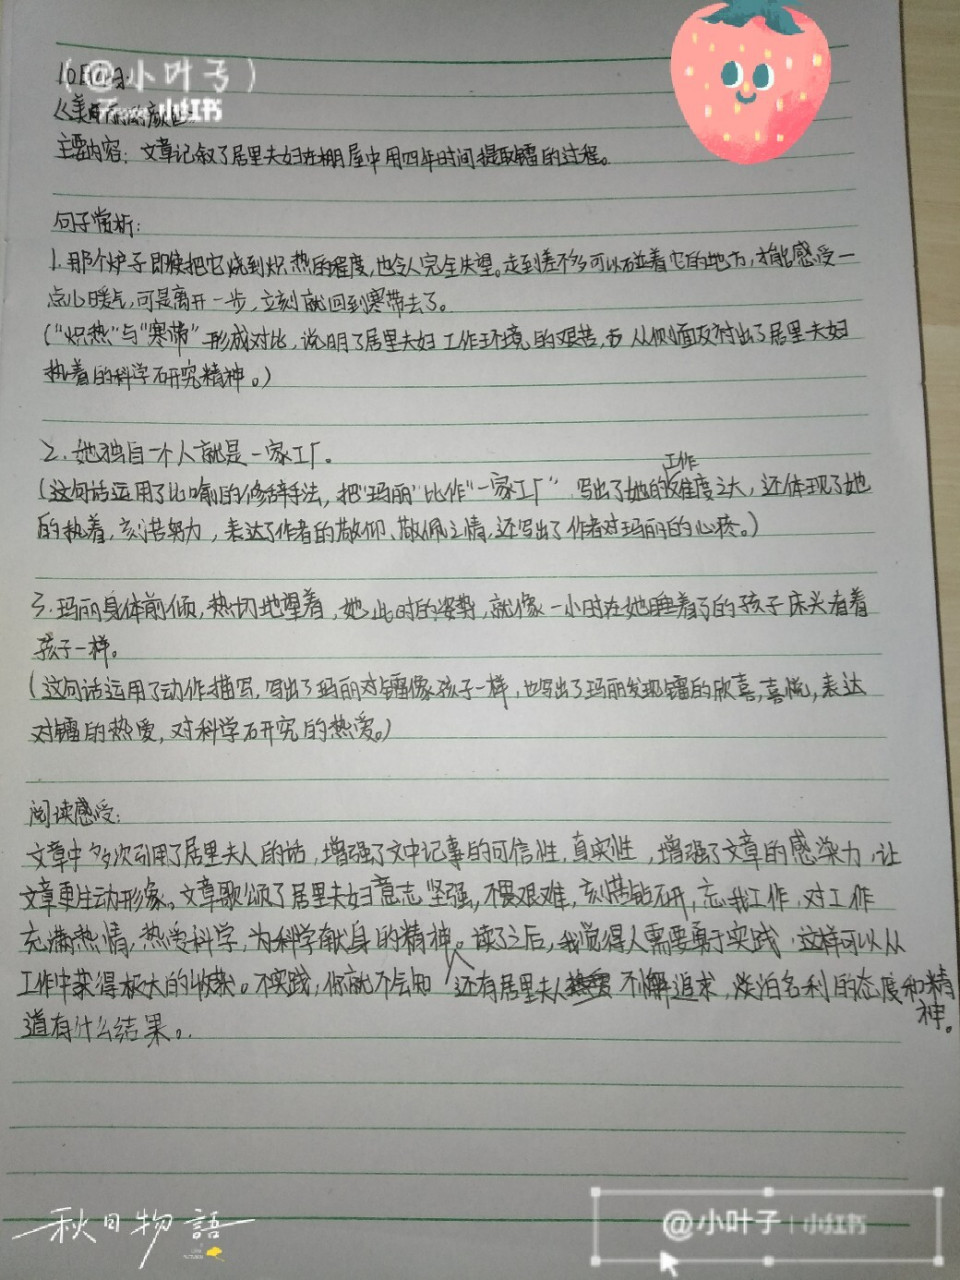 (@小叶子)
小红书
主要内容：文章记叙了居里夫妇在棚屋中用四年时间提取镭的过程。
句子赏析：
1.那个炉子即使把它烧到炽热的程度，也令人完全失望。走到差不多可以碰着它的地方，才能感受一
点儿暖气，可是离开一步，立刻就回到寒带去了。
(“炽热”与“寒带”形成对比，说明了居里夫妇工作环境的艰苦，也从侧面反衬出了居里夫妇
执着的科学研究精神。)
2.她独自一个人就是一家工厂。
工作
(这句话运用了比喻的修辞手法，把“玛丽”比作“一家工厂”，写出了她的难度之大，还体现了她
的执着，刻苦努力，表达了作者的敬仰、敬佩之情，还写出了作者对玛丽的心疼。)
3.玛丽身体前倾，热切地望着，她此时的姿势，就像一小时在她睡着了的孩子床头看着
孩子一样。
(这句话运用了动作描写，写出了玛丽对镭像孩子一样，也写出了玛丽发现镭的欣喜，喜悦，表达
对镭的热爱，对科学研究的热爱。)
阅读感受：
文章中多次引用了居里夫人的话，增强了文中记事的可信性，真实性，增强了文章的感染力，让
文章更生动形象。文章歌颂了居里夫妇意志坚强，不畏艰难，刻苦钻研，忘我工作，对工作
充满热情，热爱科学，为科学献身的精神。读了之后，我觉得人需要勇于实践，这样可以从
工作中获得极大的收获。不实践，你就不会知
还有居里夫人不懈追求，淡泊名利的态度和精
神。
道有什么结果。
秋日物語
@小叶子|小红书